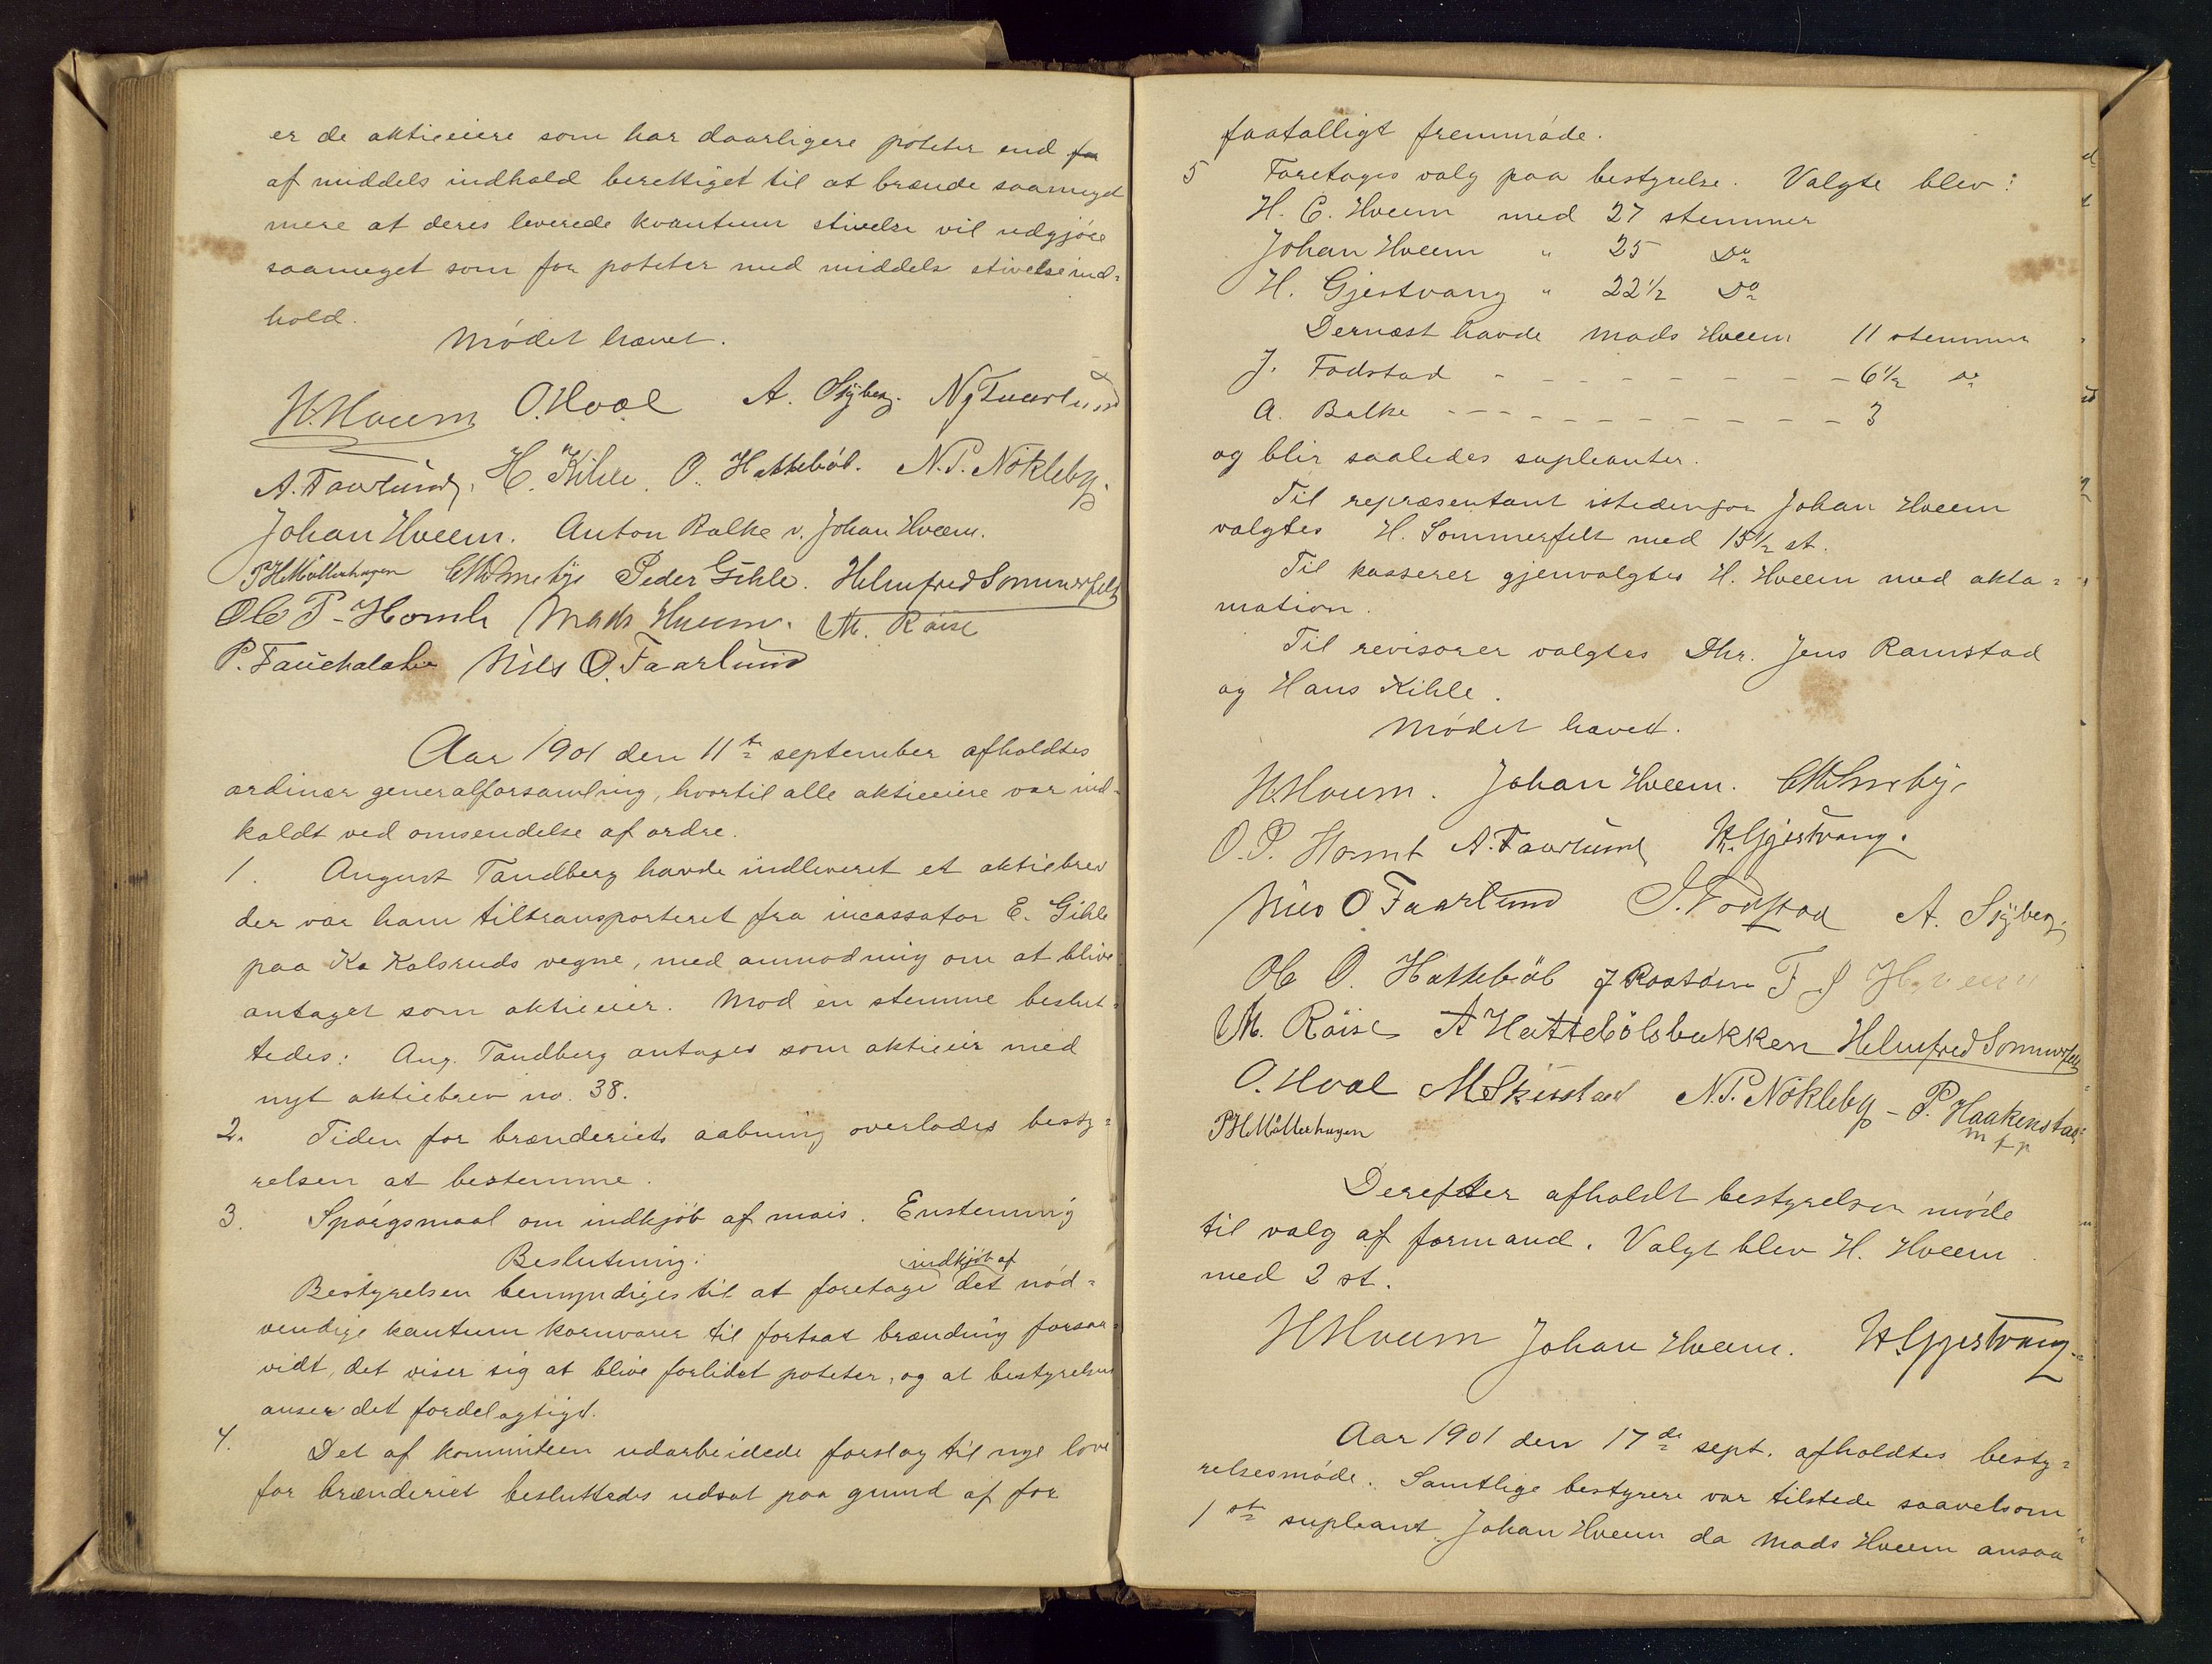 er de aktieeiere som har daarligere poteter end for
af middels indhold berettiget til at brænde saameget
mere at deres leverede kvantum stivelse vil udgjøre
saameget som for poteter med middels stivelseind=
hold.
Mødet hævet.
H. Hveem O. Hoel A. Sjyberg. N J Faarlund
A. Faarlund. H. Kihle. O. Hattebøl. N. P. Nökleby.
Johan Hveem. Anton Balke v. Johan Hveem.
P H Möllerhagen Peder Gihle. Helmfred Sommerfelt
Ole P. Homb Mads Hveem. M. Röise
P. Nils O. Faarlund
Aar 1901 den 11te september afholdtes
ordinær generalforsamling, hvortil alle aktieeiere var ind=
kaldt ved omsendelse af ordre.
1. August Tandberg havde indleveret et aktiebrev
der var ham tiltransporteret fra incassator E. Gihle
paa Ka Kolsruds vegne, med anmodning om at blive
antaget som aktieeier. Mod en stemme beslut=
tedes: Aug. Tandberg antages som aktieeier med
nyt aktiebrev no. 38.
2. Tiden for brænderiets aabning overlodes besty=
relsen at bestemme.
3. Spørgsmaal om indkjøb af mais. Enstemmig
Beslutning:
indkjøb af
Bestyrelsen bemyndiges til at foretage det nød=
vendige kantum kornvarer til fortsat brænding forsaa=
vidt, det viser sig at blive forlidet poteter, og at bestyrelsen
anser det fordelagtigt.
4. Det af kommiteen udarbeidede forslag til nye love
for brænderiet besluttedes udsat paa grund af for
faatalligt fremmøde.
5 Foretages valg paa bestyrelse. Valgte blev:
H. C. Hveem med 27 stemmer
Johan Hveem " 25 Do
H. Gjestvang " 22½ Do
Dernæst havde Mads Hveem 11 stemmer
J. Fodstad - - - - - - - - - 6½ Do
A. Balke - - - - - - - - - - 3
og blir saaledes supleanter.
Til repræsentant istedenfor Johan Hveem
valgtes H. Sommerfelt med 15½ st.
Til kasserer gjenvalgtes H. Hveem med akla=
mation.
Til revisorer valgtes Dhr. Jens Ramstad
og Hans Kihle.
Mødet hævet.
H. Hveem. Johan Hveem.
O. P. Homb A. Faarlund H. Gjestvang.
Nils O Faarlund J. Fodstad A. Sjyberg.
Ole O. Hattebøl J Rostøen T J Hveem
M. Röise A Hattebölsbakken Helmfred Sommerfelt
O. Hoel M Skistad N. P. Nökleby - P. Haakenstad
m f p
P H Möllerhagen
Derefter afholdt bestyrelsen møde
til valg af formand. Valgt blev H. Hveem
med 2 st.
H Hveem Johan Hveem. H. Gjestvang.
Aar 1901 den 17de sept. afholdtes besty=
relsesmøde. Samtlige bestyrere var tilstede saavelsom
1ste supleant. Johan Hveem da Mads Hveem ansaa